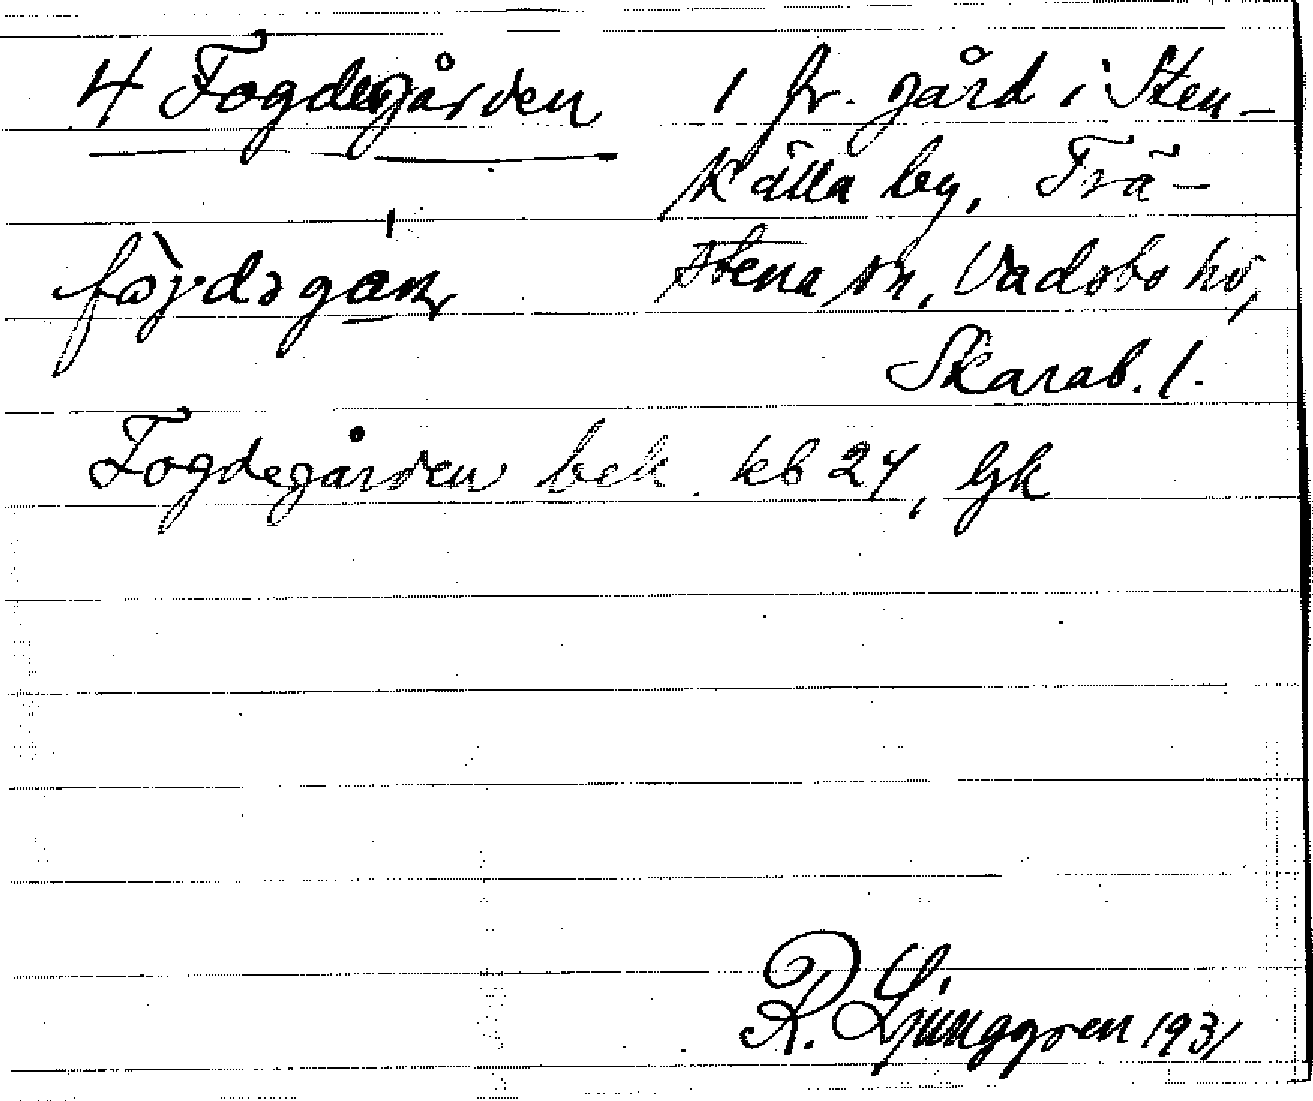 4 Fogdegården
1 fr. gård i Sten-
källa by, Trä-
stena sn, Vadsbo hd,
Skarab. l.
Fogdegården bek. kb 24, Gk
R. Ljunggren 1931